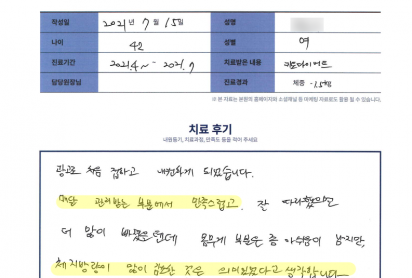 작성일 2021년 7월 15일 성명
나이 42 성별 여
진료기간 2021.4 ~ 2021.7 치료받은 내용 키토다이어트
담당원장님 진료경과 체중 -1.5kg
※ 본 자료는 본원의 홈페이지와 소셜채널 등 마케팅 자료로도 활용 될 수 있습니다.
치료 후기
내원동기, 치료과정, 만족도 등을 적어 주세요
광고로 처음 접하고 내원하게 되었습니다.
매달 관리받는 부분에서 만족스럽고. 잘 따라했으면
더 많이 빠졌을텐데 몸무게 부분은 좀 아쉬움이 남지만,
체지방량이 많이 감소한 것은 의미있었다고 생각합니다